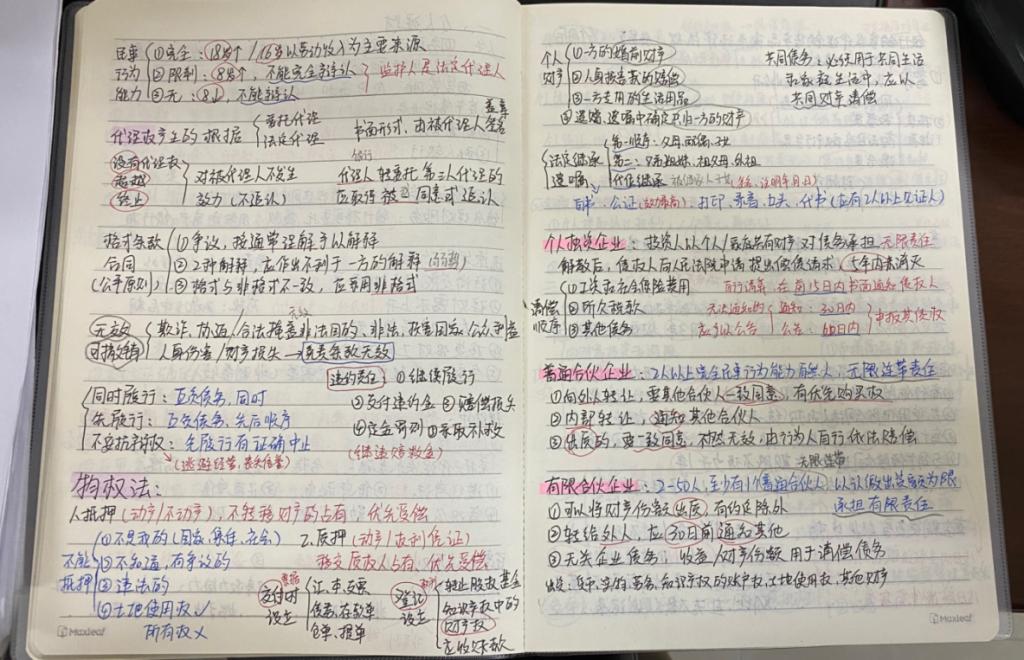 民事 ①完全：18岁↑/16岁以劳动收入为主要来源
行为 ②限制：8岁↑，不能完全辨认 } 监护人是法定代理人
能力 ③无：8↓，不能辨认
代理权产生的根据 { 委托代理 书面形式，由被代理人签名 盖章
法定代理
没有代理权
超越
终止
对被代理人不发生
效力（不追认）
代理人转委托第三人代理的
应取得被 同意或追认
格式条款 ①争议，按通常理解予以解释
合同 ②2种解释，应作出不利于一方的解释
（公平原则） ③格式与非格式不一致，应采用非格式
无效
无效 欺诈、胁迫/合法掩盖非法目的、非法，损害国家公众利益
可撤销 人身伤害/财产损失→免责条款无效
违约责任：①继续履行
②支付违约金 ③赔偿损失
④定金罚则 ⑤采取补救
同时履行：互负债务，同时
先履行：互负债务，先后顺序
不安抗辩权：先履行有证确中止
（逃避经营，丧失信誉）
物权法：
1.抵押（动产/不动产），不转移财产的占有，优先受偿
不能抵押 ①不是我的（国家，集体，社会）
②不知道，有争议的
③违法的
④土地使用权✓
所有权×
2.质押（动产/权利凭证）
移交债权人占有，优先受偿
交付时设立 { 汇、本、支票
债券、存款单
仓单、提单
登记设立 { 转让股权 基金
知识产权中的
财产权
应收账款
个人 ①一方的婚前财产
财产 ②人身损害获的赔偿
③一方专用的生活用品
④遗嘱、遗赠中确定只归一方的财产
共同债务：必须用于共同生活
应以
共同财产清偿
法定继承 第一顺序：父母，配偶，子女
第二：兄弟姐妹，祖父母，外祖
遗嘱 代位继承
（签名，注明年月日）
自书、公证（效力最高）、打印、录音、口头、代书（应有2人以上见证人）
个人独资企业：投资人以个人/家庭共有财产对债务承担无限责任
解散后，债权人向人民法院申请提出偿债请求，5年内未消灭
清偿顺序 ①工资社会保险费用
②所欠税款
③其他债务
自行清算：在前15日内书面通知债权人
无法通知的 通知：30日内
应予以公告 公告：60日内 } 申报其债权
普通合伙企业：2人以上完全民事行为能力自然人，无限连带责任
①向外人转让，需其他合伙人一致同意，有优先购买权
②内部转让，通知其他合伙人
③出质的，要一致同意，对外无效，由行为人自行依法赔偿
无限连带
有限合伙企业：2-50人，至少有1个普通合伙人，以认缴出资额为限
承担有限责任
①可以将财产份额出质，有约定除外
②转给外人，应30日前通知其他
③无关企业债务，收益/财产份额用于清偿债务
出资：货币、实物、劳务、知识产权的财产权，土地使用权，其他财产
Maxleaf
Maxleaf